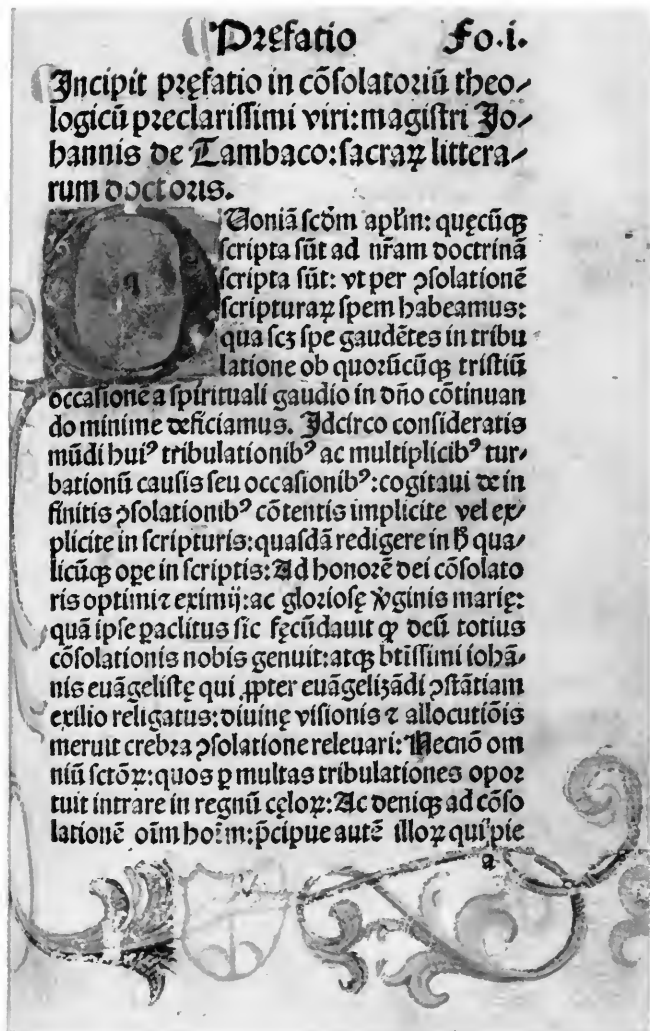 Prefatio Fo.i.
Incipit pręfatio in cõſolatoriũ theo⸗
logicũ preclariſſimi viri:magiſtri Jo⸗
hannis de Tambaco:ſacraꝝ littera⸗
rum doctoris.
QUoniã ſcḋm apl'm: quęcũqꝫ
ſcripta ſũt ad nr̃am doctrinã
ſcripta ſũt: vt per ꝯſolationẽ
ſcripturaꝝ ſpem habeamus:
qua ſcꝫ ſpe gaudẽtes in tribu
latione ob quorũcũqꝫ triſtiũ
occaſionẽ a ſpirituali gaudio in dño cõtinuan
do minime deficiamus. Idcirco conſideratis
mũdi huiꝰ tribulationibꝰ ac multiplicibꝰ tur⸗
bationũ cauſis ſeu occaſionibꝰ:cogitaui de in
finitis ꝯſolationibꝰ cõtentis implicite vel ex⸗
plicite in ſcripturis:quaſdã redigere in h̃ qua⸗
licũqꝫ oꝑe in ſcriptis:Ad honorẽ dei cõſolato
ris optimi ⁊ eximij:ac glorioſę v̓ginis marię:
quã ipſe ꝑaclitus ſic fęcũdauit ꝙ deũ totius
cõſolationis nobis genuit:atqꝫ btĩſſimi iohã⸗
nis euãgeliſtę qui ꝓpter euãgeliꝫãdi ꝯſtãtiam
exilio religatus:diuinę viſionis ⁊ allocutiõis
meruit crebra ꝯſolatione releuari:Necnõ om
niũ ſctõꝝ:quos ꝑ multas tribulationes opor
tuit intrare in regnũ cęloꝝ:Ac deniqꝫ ad cõſo
lationẽ oĩm hoĩm:p̃cipue autẽ illoꝝ qui pie
a